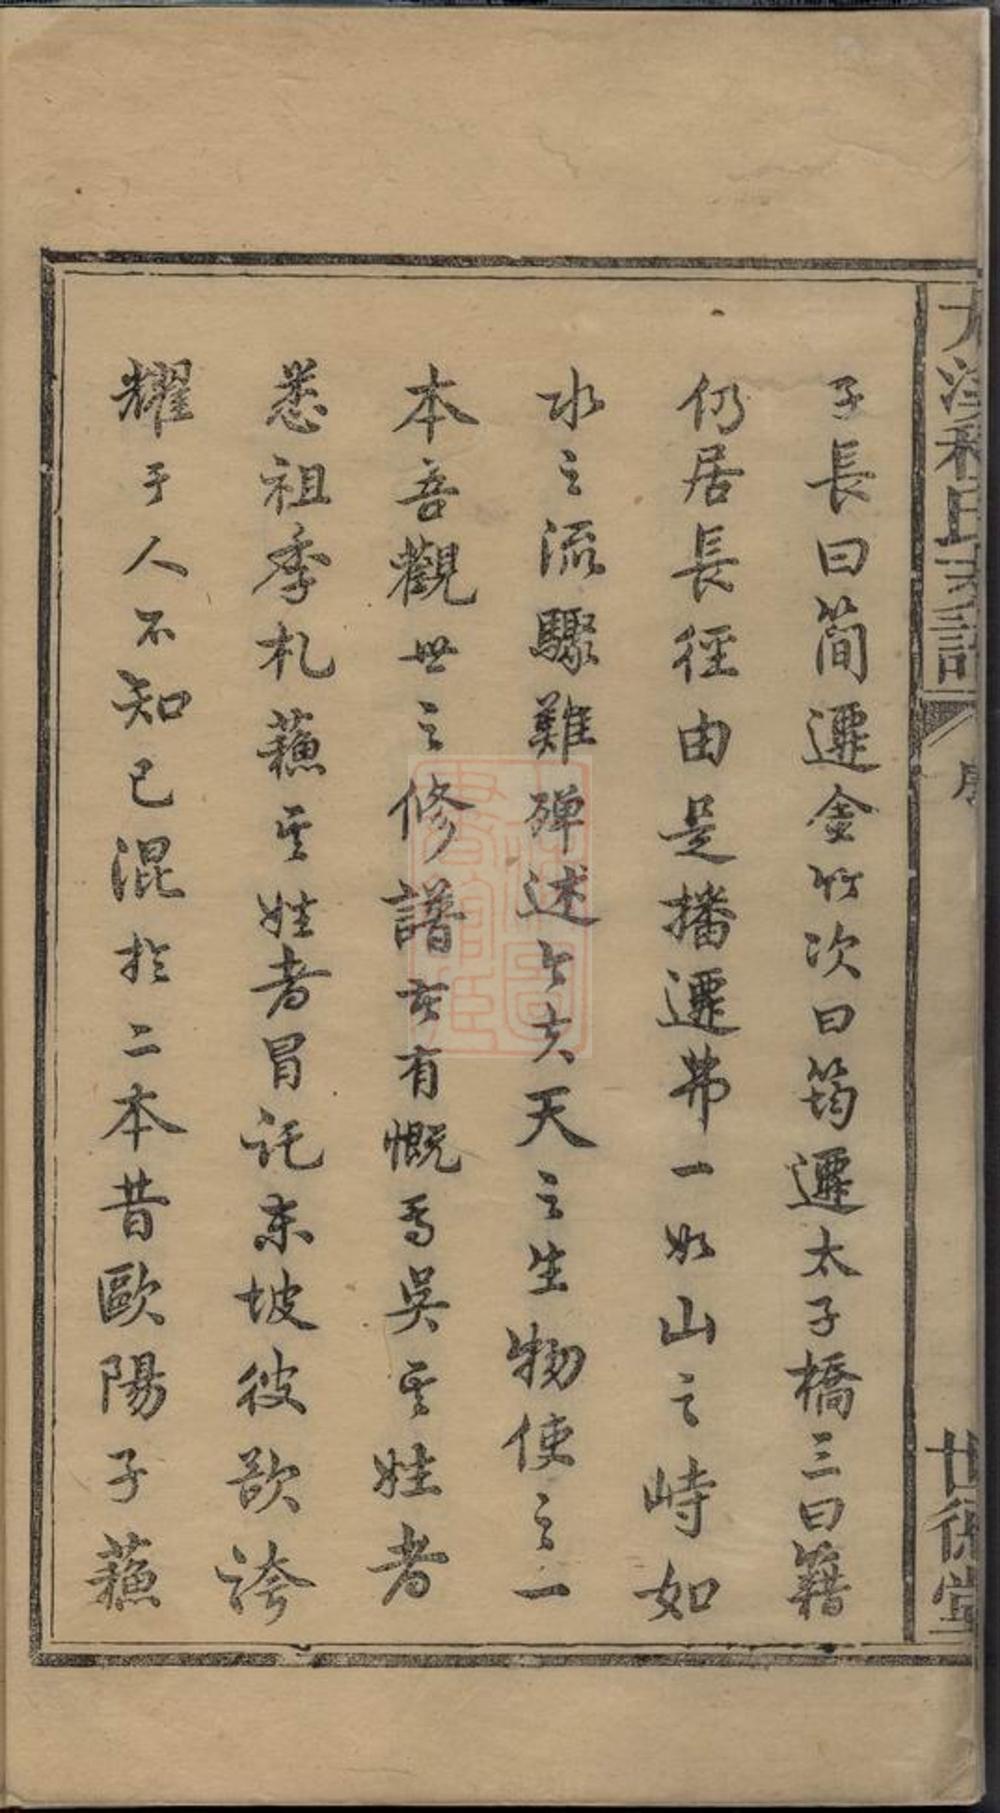 子長曰簡遷金竹次曰筠遷太子橋三曰籍
仍居長徑由是播遷弗一如山之峙如
水之流驟難殫述今夫天之生物使之一
本吾觀世之修譜甚有慨焉吳其姓者
悉祖季札蘇其姓者冒託東坡彼欲誇
耀于人不知已混於二本昔歐陽子蘇
程氏支譜
序
世德堂